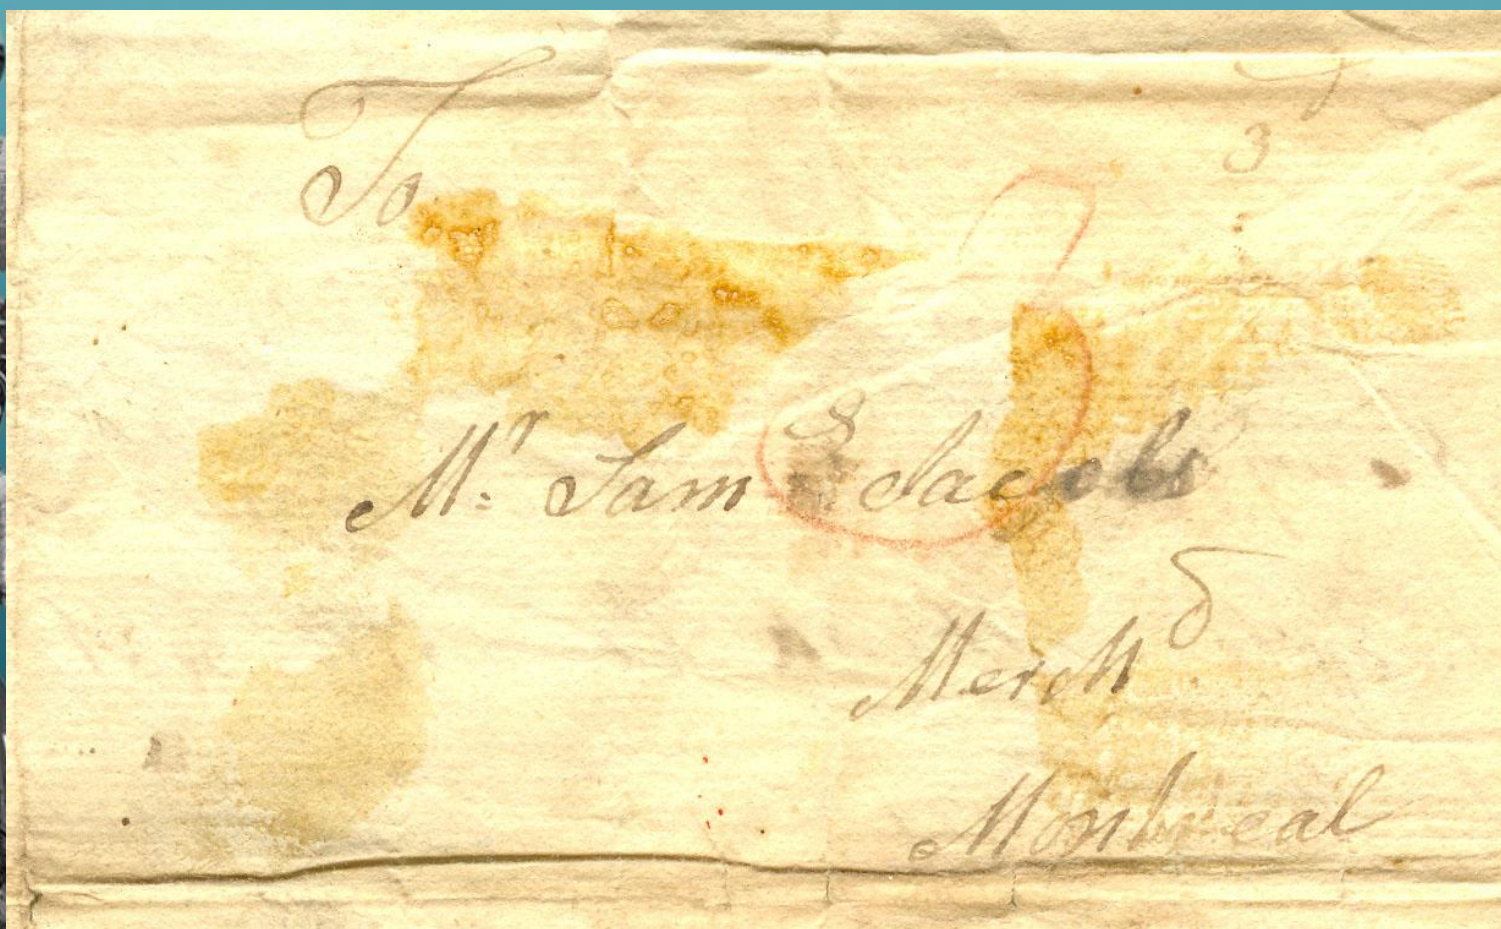 To
3
Mr. Sam Jacobs
Mercht
Montreal